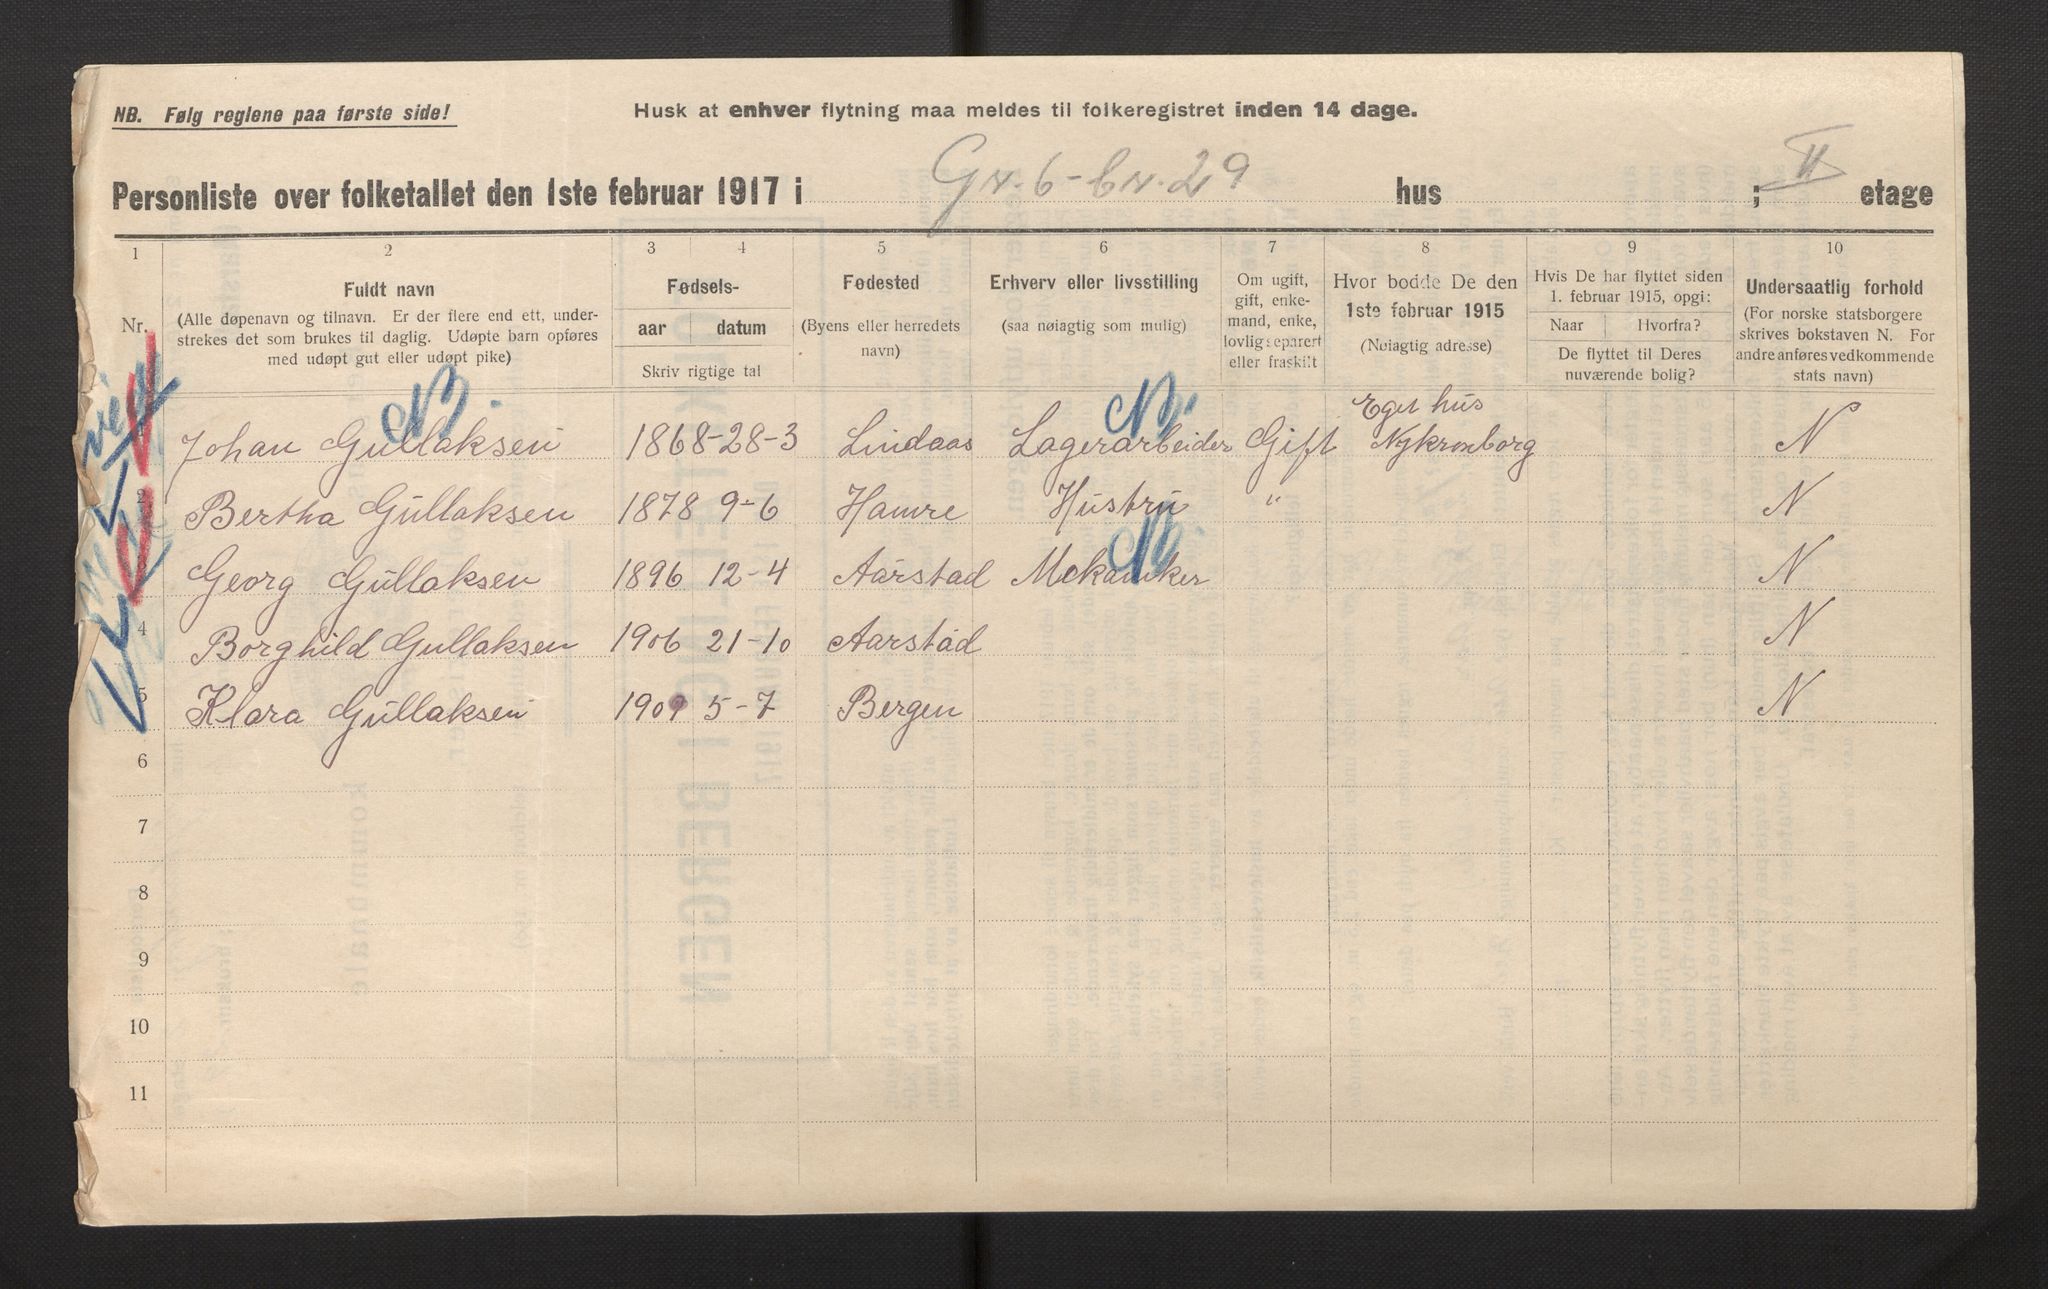 NB. Følg reglene paa første side!
Husk at enhver flytning maa meldes til folkeregistret inden 14 dage.
Personliste over folketallet den 1ste februar 1917 i Gn. 6 - bn. 29 hus ; II etage
1 2 3 4 5 6 7 8 9 10
Nr.
Fuldt navn
(Alle døpenavn og tilnavn. Er der flere end ett, under-
strekes det som brukes til daglig. Udøpte barn opføres
med udøpt gut eller udøpt pike)
Fødsels-
aar datum
Skriv rigtige tal
Fødested
(Byens eller herredets
navn)
Erhverv eller livsstilling
(saa nøiagtig som mulig)
Om ugift,
gift, enke-
mand, enke,
lovlig separert
eller fraskilt
Hvor bodde De den
1ste februar 1915
(Nøiagtig adresse)
Hvis De har flyttet siden
1. februar 1915, opgi:
Naar Hvorfra?
De flyttet til Deres
nuværende bolig?
Undersaatlig forhold
(For norske statsborgere
skrives bokstaven N. For
andre anføres vedkommende
stats navn)
N. N.
Eget hus
Johan Gullaksen 1868 - 28-3 Lindaas Lagerarbeider Gift Nykronborg N
2 Bertha Gullaksen 1878 9-6 Hamre Hustru " N
N.
3 Georg Gullaksen 1896 12-4 Aarstad Mekaniker N
4 Borghild Gullaksen 1906 21-10 Aarstad N
5 Klara Gullaksen 1909 5-7 Bergen N
6
7
8
9
10
11